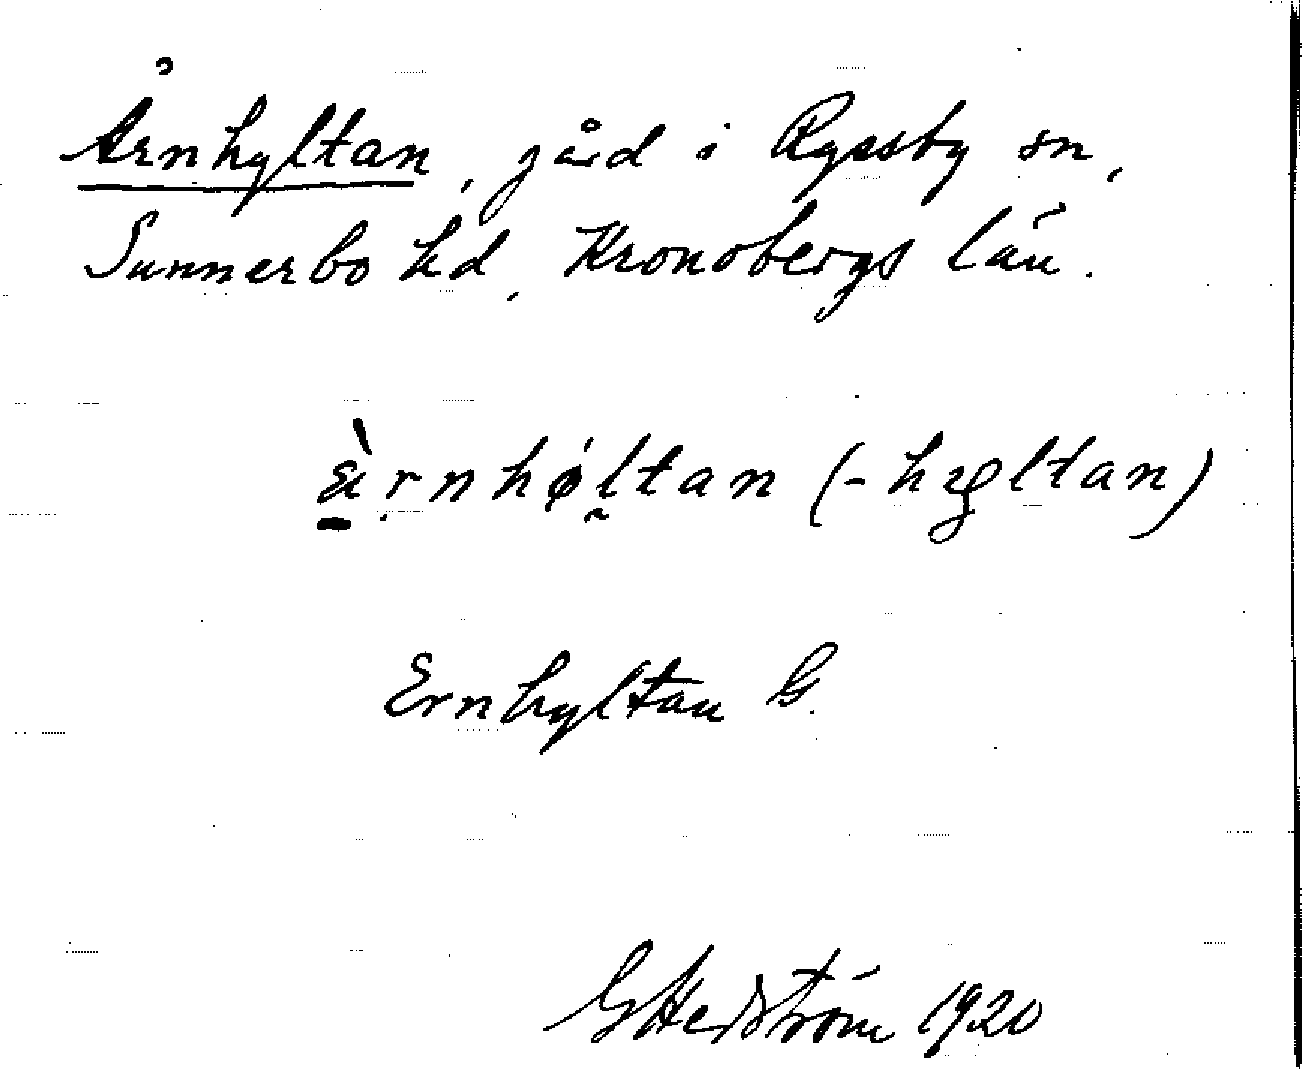 Årnhyltan, gård i Ryssby sn,
Sunnerbo hd, Kronobergs län.
ὲrnhøltan (-hyltan)
Ernhyltan G.
G Hedström 1920